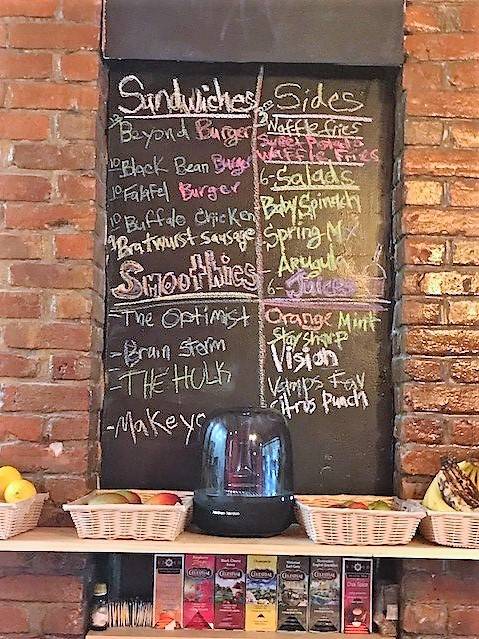 Sandwiches
Beyond Burger
10 Black Bean Burger
10 Falafel Burger
10 Buffalo Chicken
9 Bratwurst Sausage
Smoothies
- The Optimist
- Brain Storm
- THE HULK
- Makeyo
Sides
Waffle fries
Sweet Potato
Waffle Fries
6- Salads
Baby Spinach
Spring Mix
Arugula
6- Juices
Orange Mint
Stay sharp
Vision
Vamps Fav
Citrus Punch
harman/kardon
CELESTIAL
CELESTIAL
CELESTIAL
CELESTIAL
CELESTIAL